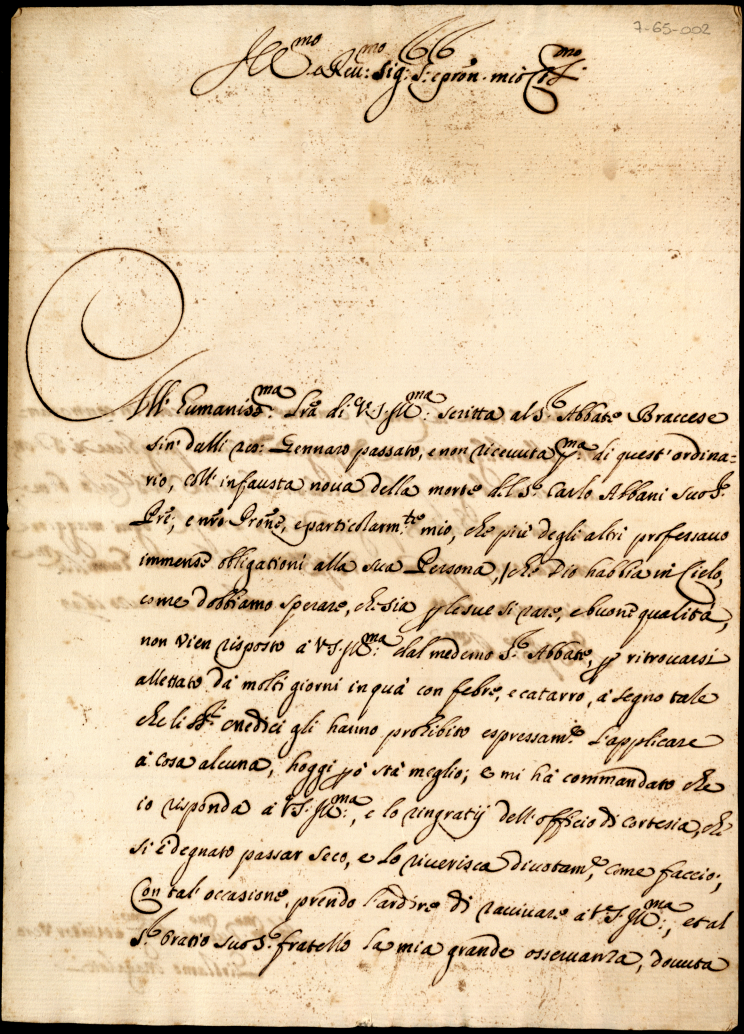 7-65-002
Ill.mo e Reu: Sig: S: e pron. mio Col.mo
All' Humaniss.ma: Lrã di V.S. Ill.ma: scritta al S.r Abbate Braccese
sin' dalli Gennaro passato, e non riceuuta p.ma: di quest' ordina=
rio, coll' infausta noua della morte del S.r Carlo Abbani suo S.r
Prẽ, e nrõ Pronẽ, e particolarm.te mio, che più degli altri professauo
immense obligationi alla sua Persona, che Dio habbia in Cielo,
come dobbiamo sperare, che sia p le sue si rare, e buone qualità,
non vien risposto à V.S. Ill.ma: dal medemo S.r Abbate, p ritrouarsi
allettato da molti giorni in quà con febre, e catarro, à segno tale
che li SS.ri Medici gli hanno prohibito espressam.te l'applicare
à cosa alcuna, hoggi pò stà meglio; e mi hà commandato che
io risponda à V.S. Ill.ma:, e lo ringratij dell' officio di cortesia, che
si è degnato passar seco, e lo riuerisca diuotam.te, come faccio;
Con tal' occasione prendo l'ardire di rauuiuare à V.S. Ill.ma:, et al
S.r Oratio suo S.r fratello la mia grande osseruanza, douuta